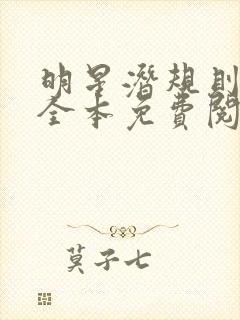 明星潜规则
全本免费阅
莫子七